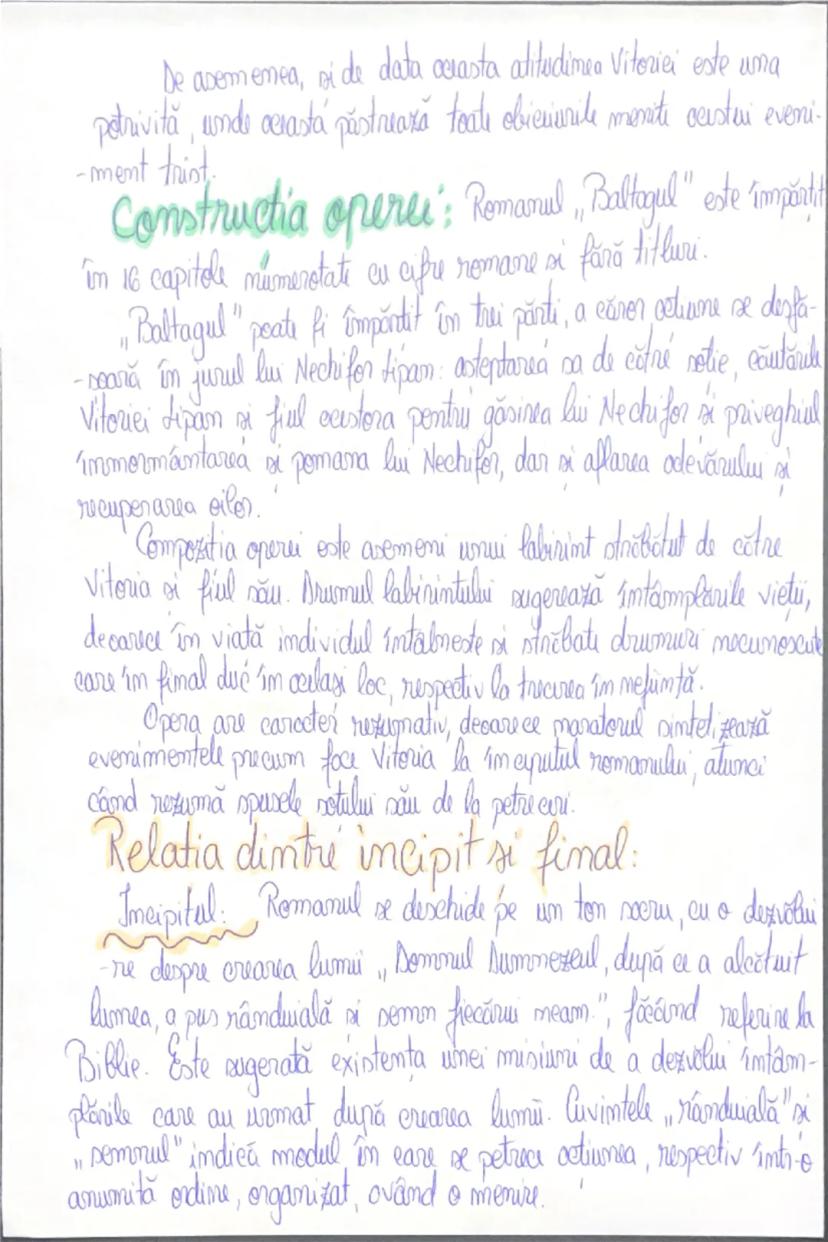 De asemenea, și de data aceasta atitudinea Vitoriei este una
potrivită, unde aceasta păstrează toate obiceiurile menite acestui eveni-
-ment trist.
Construcția operei: Romanul „Baltagul" este împărțit
în 16 capitole numerotate cu cifre romane și fără titluri.
„Baltagul" poate fi împărțit în trei părți, a căror acțiune se desfă-
-șoară în jurul lui Nechifor Lipan: așteptarea sa de către soție, căutările
Vitoriei Lipan și fiul acestora pentru găsirea lui Nechifor și priveghiul
înmormântarea și pomana lui Nechifor, dar și aflarea adevărului și
recuperarea oilor.
Compoziția operei este asemeni unui labirint străbătut de către
Vitoria și fiul său. Drumul labirintului sugerează întâmplările vieții,
deoarece în viață individul întalnește și străbate drumuri necunoscute
care în final duc în același loc, respectiv la trecerea în neființă.
Opera are caracter rezumativ, deoarece naratorul sintetizează
evenimentele precum face Vitoria la începutul romanului, atunci
când rezumă spusele soțului său de la petreceri.
Relația dintre incipit și final:
Incipitul: Romanul se deschide pe un ton sacru, cu o dezvălui
-re despre crearea lumii „Domnul Dumnezeul, după ce a alcătuit
lumea, a pus rânduială și semn fiecărui neam.", făcând referire la
Biblie. Este sugerată existența unei misiuni de a dezvălui întâm-
plările care au urmat după crearea lumii. Cuvintele „rânduială" și
„semnul" indică modul în care se petrece acțiunea, respectiv într-o
anumită ordine, organizat, având o menire.